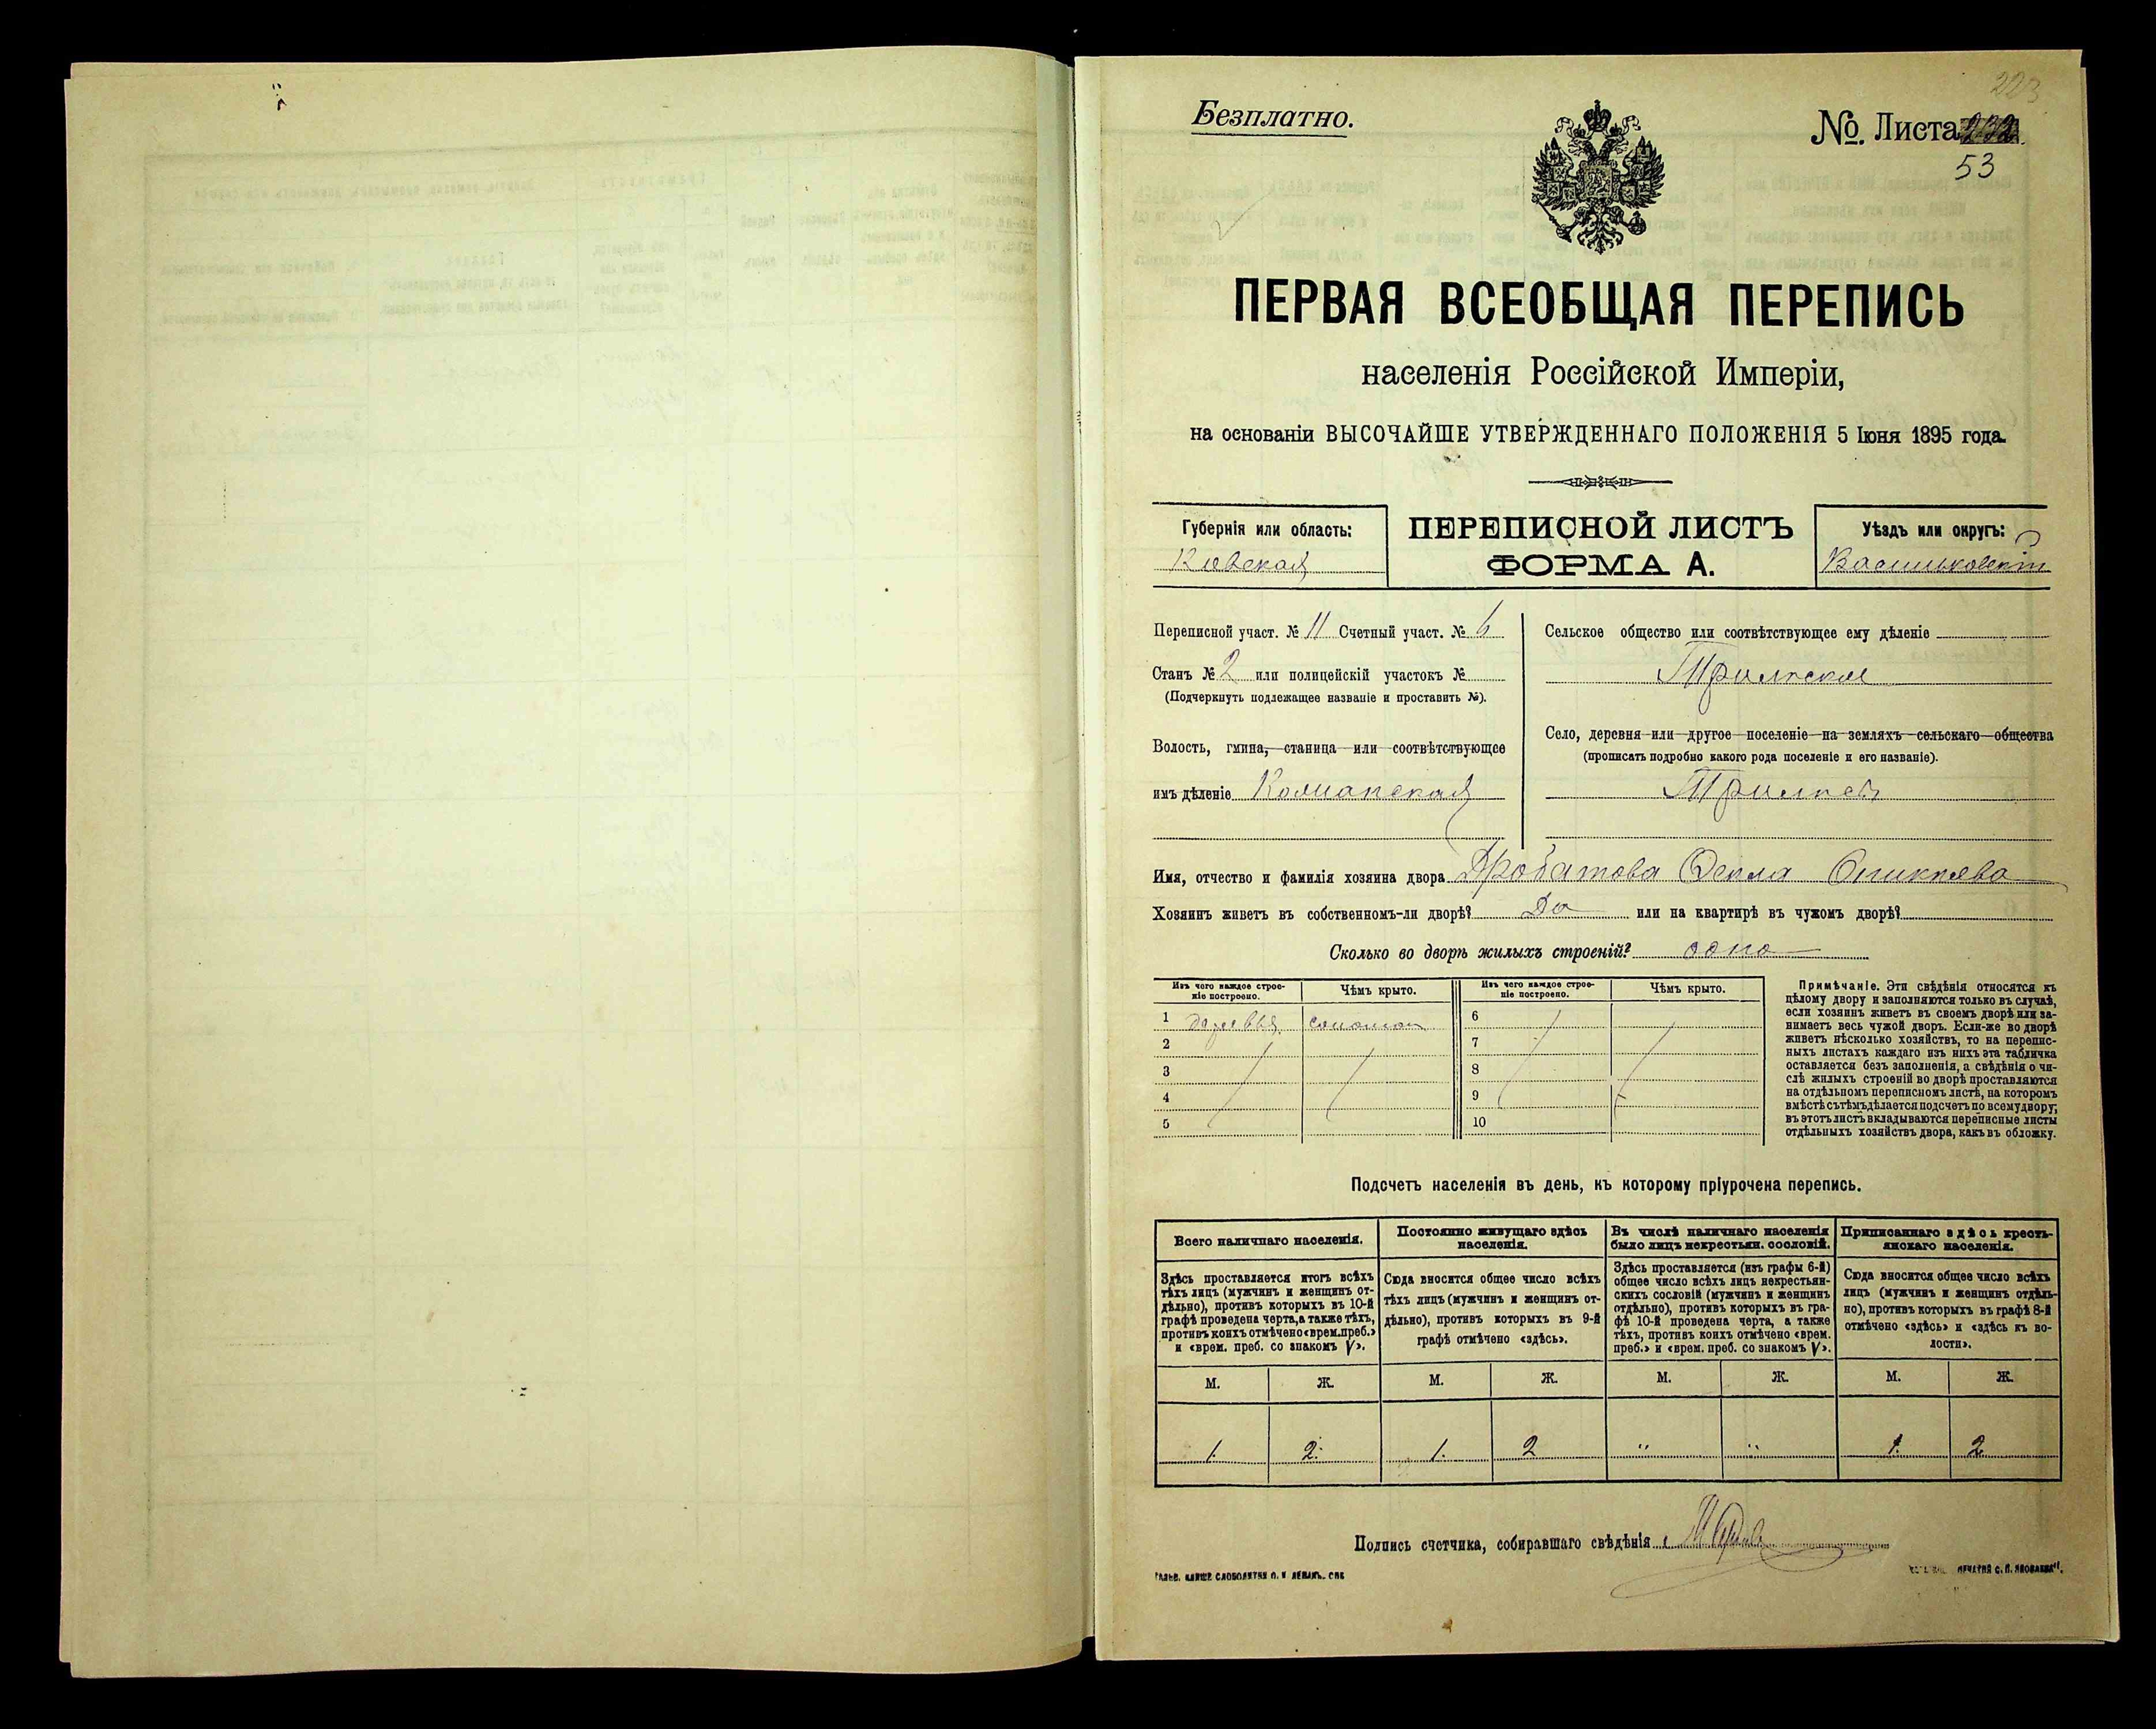 223
Безплатно.
№. Листа 232.
53
ПЕРВАЯ ВСЕОБЩАЯ ПЕРЕПИСЬ
населенія Россійской Имперіи,
на основаніи ВЫСОЧАЙШЕ УТВЕРЖДЕННАГО ПОЛОЖЕНІЯ 5 Іюня 1895 года.
Губернія или область:
Кіевская
ПЕРЕПИСНОЙ ЛИСТЪ
ФОРМА А.
Уѣздъ или округъ:
Васильковскій
Переписной участ. № 11 Счетный участ. № 6
Станъ № 2 или полицейскій участокъ №
(Подчеркнуть подлежащее названіе и проставить №).
Волость, гмина, станица или соотвѣтствующее
имъ дѣленіе
Сельское общество или соотвѣтствующее ему дѣленіе
Трилѣское
Село, деревня или другое поселеніе на земляхъ сельскаго общества
(прописать подробно какого рода поселеніе и его названіе).
Трилѣсы
Имя, отчество и фамилія хозяина двора
Хозяинъ живетъ въ собственномъ-ли дворѣ? Да или на квартирѣ въ чужомъ дворѣ?
Сколько во дворѣ жилыхъ строеній? одно
Изъ чего каждое строе-
ніе построено.
Чѣмъ крыто.
Изъ чего каждое строе-
ніе построено.
Чѣмъ крыто.
1 деревья соломою 6
2 7
3 8
4 9
5 10
Примѣчаніе. Эти свѣдѣнія относятся къ
цѣлому двору и заполняются только въ случаѣ,
если хозяинъ живетъ въ своемъ дворѣ или за-
нимаетъ весь чужой дворъ. Если-же во дворѣ
живетъ нѣсколько хозяйствъ, то на перепис-
ныхъ листахъ каждаго изъ нихъ эта табличка
оставляется безъ заполненія, а свѣдѣнія о чи-
слѣ жилыхъ строеній во дворѣ проставляются
на отдѣльномъ переписномъ листѣ, на которомъ
вмѣстѣ съ тѣмъ дѣлается подсчетъ по всему двору;
въ этотъ листъ вкладываются переписные листы
отдѣльныхъ хозяйствъ двора, какъ въ обложку.
Подсчетъ населенія въ день, къ которому пріурочена перепись.
Всего наличнаго населенія.
Здѣсь проставляется итогъ всѣхъ
тѣхъ лицъ (мужчинъ и женщинъ от-
дѣльно), противъ которыхъ въ 10-й
графѣ проведена черта, а также тѣхъ,
противъ коихъ отмѣчено «врем. преб.»
и «врем. преб. со знакомъ V».
Постоянно живущаго здѣсь
населенія.
Сюда вносится общее число всѣхъ
тѣхъ лицъ (мужчинъ и женщинъ от-
дѣльно), противъ которыхъ въ 9-й
графѣ отмѣчено «здѣсь».
Въ числѣ наличнаго населенія
было лицъ некрестьян. сословій.
Здѣсь проставляется (изъ графы 6-й)
общее число всѣхъ лицъ некрестьян-
скихъ сословій (мужчинъ и женщинъ
отдѣльно), противъ которыхъ въ гра-
фѣ 10-й проведена черта, а также
тѣхъ, противъ коихъ отмѣчено «врем.
преб.» и «врем. преб. со знакомъ V».
Приписаннаго здѣсь кресть-
янскаго населенія.
Сюда вносится общее число всѣхъ
лицъ (мужчинъ и женщинъ отдѣль-
но), противъ которыхъ въ графѣ 8-й
отмѣчено «здѣсь» и «здѣсь къ во-
лости».
М. Ж. М. Ж. М. Ж. М. Ж.
1. 2. 1. 2 " " 1. 2
Подпись счетчика, собиравшаго свѣдѣнія